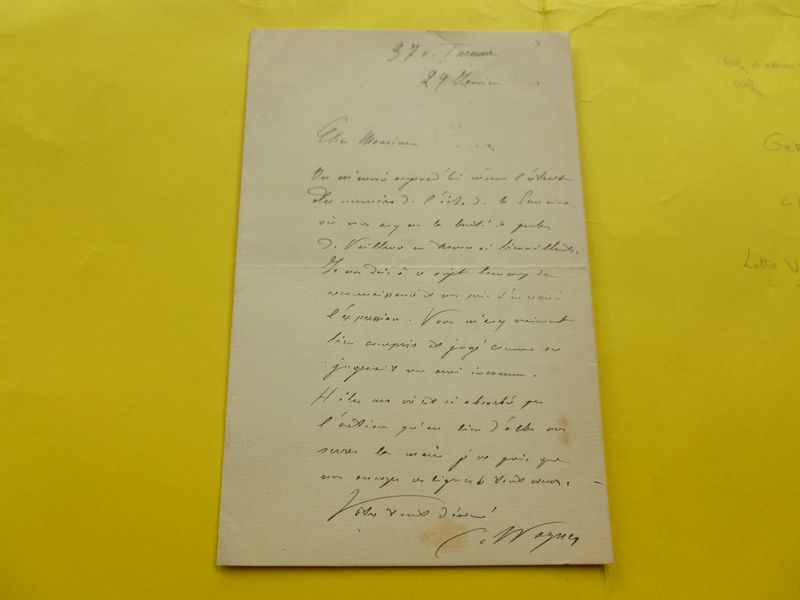 37 r. Turenne
29
Cher Monsieur
On m'envoie aujourd'hui même l'extrait
des numéros de l'écho de la Semaine
où vous avez eu la bonté de parler
de Vaillance en termes si bienveillants.
Je vous dois à ce sujet beaucoup de
reconnaissance et vous prie d'en recevoir
l'expression. Vous m'avez vraiment
bien compris et jugé comme on
jugerait un ami inconnu.
Hélas ma vie est si absorbée par
l'action qu'au lieu d'aller vous
serrer la main je ne puis que
vous envoyer ces lignes de tout cœur.
Votre tout dévoué
C. Wagner